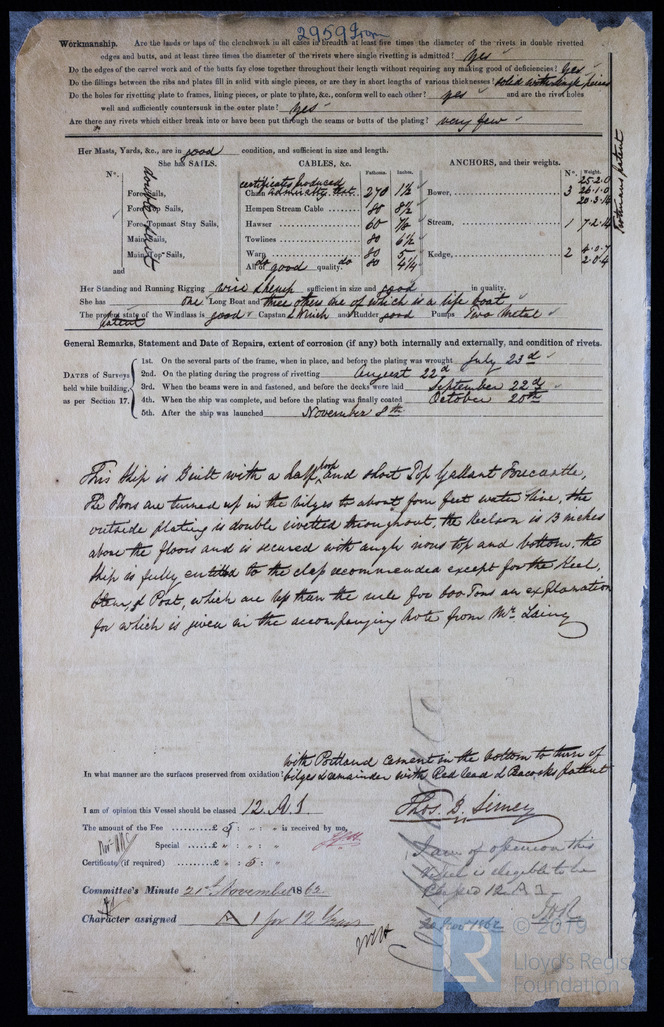 2959 Iron
Workmanship. Are the lands or laps of the clenchwork in all cases in breadth at least five times the diameter of the rivets in double rivetted
edges and butts, and at least three times the diameter of the rivets where single rivetting is admitted? Yes
Do the edges of the carvel work and of the butts fay close together throughout their length without requiring any making good of deficiencies? Yes
Do the fillings between the ribs and plates fill in solid with single pieces, or are they in short lengths of various thicknesses? solid with single pieces
Do the holes for rivetting plate to frames, lining pieces, or plate to plate, &c., conform well to each other? yes and are the rivet holes
well and sufficiently countersunk in the outer plate? yes
Are there any rivets which either break into or have been put through the seams or butts of the plating? very few
Her Masts, Yards, &c., are in good condition, and sufficient in size and length.
She has SAILS. CABLES, &c. ANCHORS, and their weights.
N°. Fathoms. Inches. N°. Weight.
certificates produced
Fore Sails, Chain 270 1½ Bower, 3 25.2.0
26.1.0
20.3.14
Fore Top Sails, Hempen Stream Cable 80 8½
Fore Topmast Stay Sails, Hawser 60 Stream, 1 7.2.14
Main Sails, Towlines 80 6½
Main Top Sails, Warp 80 5 Kedge, 2 4.0.7
2.0.4
and All of good quality. 80 4¼
Double Suit
Trotmans patent
Her Standing and Running Rigging wire & hemp sufficient in size and good in quality.
She has one Long Boat and three others one of which is a life boat
The present state of the Windlass is good Capstan & Winch and Rudder good Pumps Two Metal
patent
General Remarks, Statement and Date of Repairs, extent of corrosion (if any) both internally and externally, and condition of rivets.
DATES of Surveys held while building, as per Section 17.
1st. On the several parts of the frame, when in place, and before the plating was wrought July 23d
2nd. On the plating during the progress of rivetting August 22d
3rd. When the beams were in and fastened, and before the decks were laid September 22d
4th. When the ship was complete, and before the plating was finally coated October 20th
5th. After the ship was launched November 8th
This Ship is Built with a half poop and short Top Gallant Forecastle,
The Floors are turned up in the bilges to about four feet water line, the
outside plating is double rivetted throughout, the Keelson is 13 inches
above the floors and is secured with angle irons top and bottom. the
Ship is fully entitled to the class recommended except for the Keel,
Stem, & Post, which are less than the rule for 600 Tons an explanation
for which is given in the accompanying note from Mr Laing
In what manner are the surfaces preserved from oxidation? with Portland cement in the bottom to turn of
bilges & remainder with Red lead & Peacocks patent
I am of opinion this Vessel should be classed 12 A.1
Thos. D. Simey
The amount of the Fee £ 5 : " : " is received by me,
Special £ " : " : "
Certificate (if required) £ " : 5 : "
I am of opinion this
Vessel is eligible to be
Classed 12 A 1
20 Nov 1862
Committee's Minute 21st November 1862
Character assigned A 1 for 12 Years
© 2019
Lloyd's Register
Foundation
LR